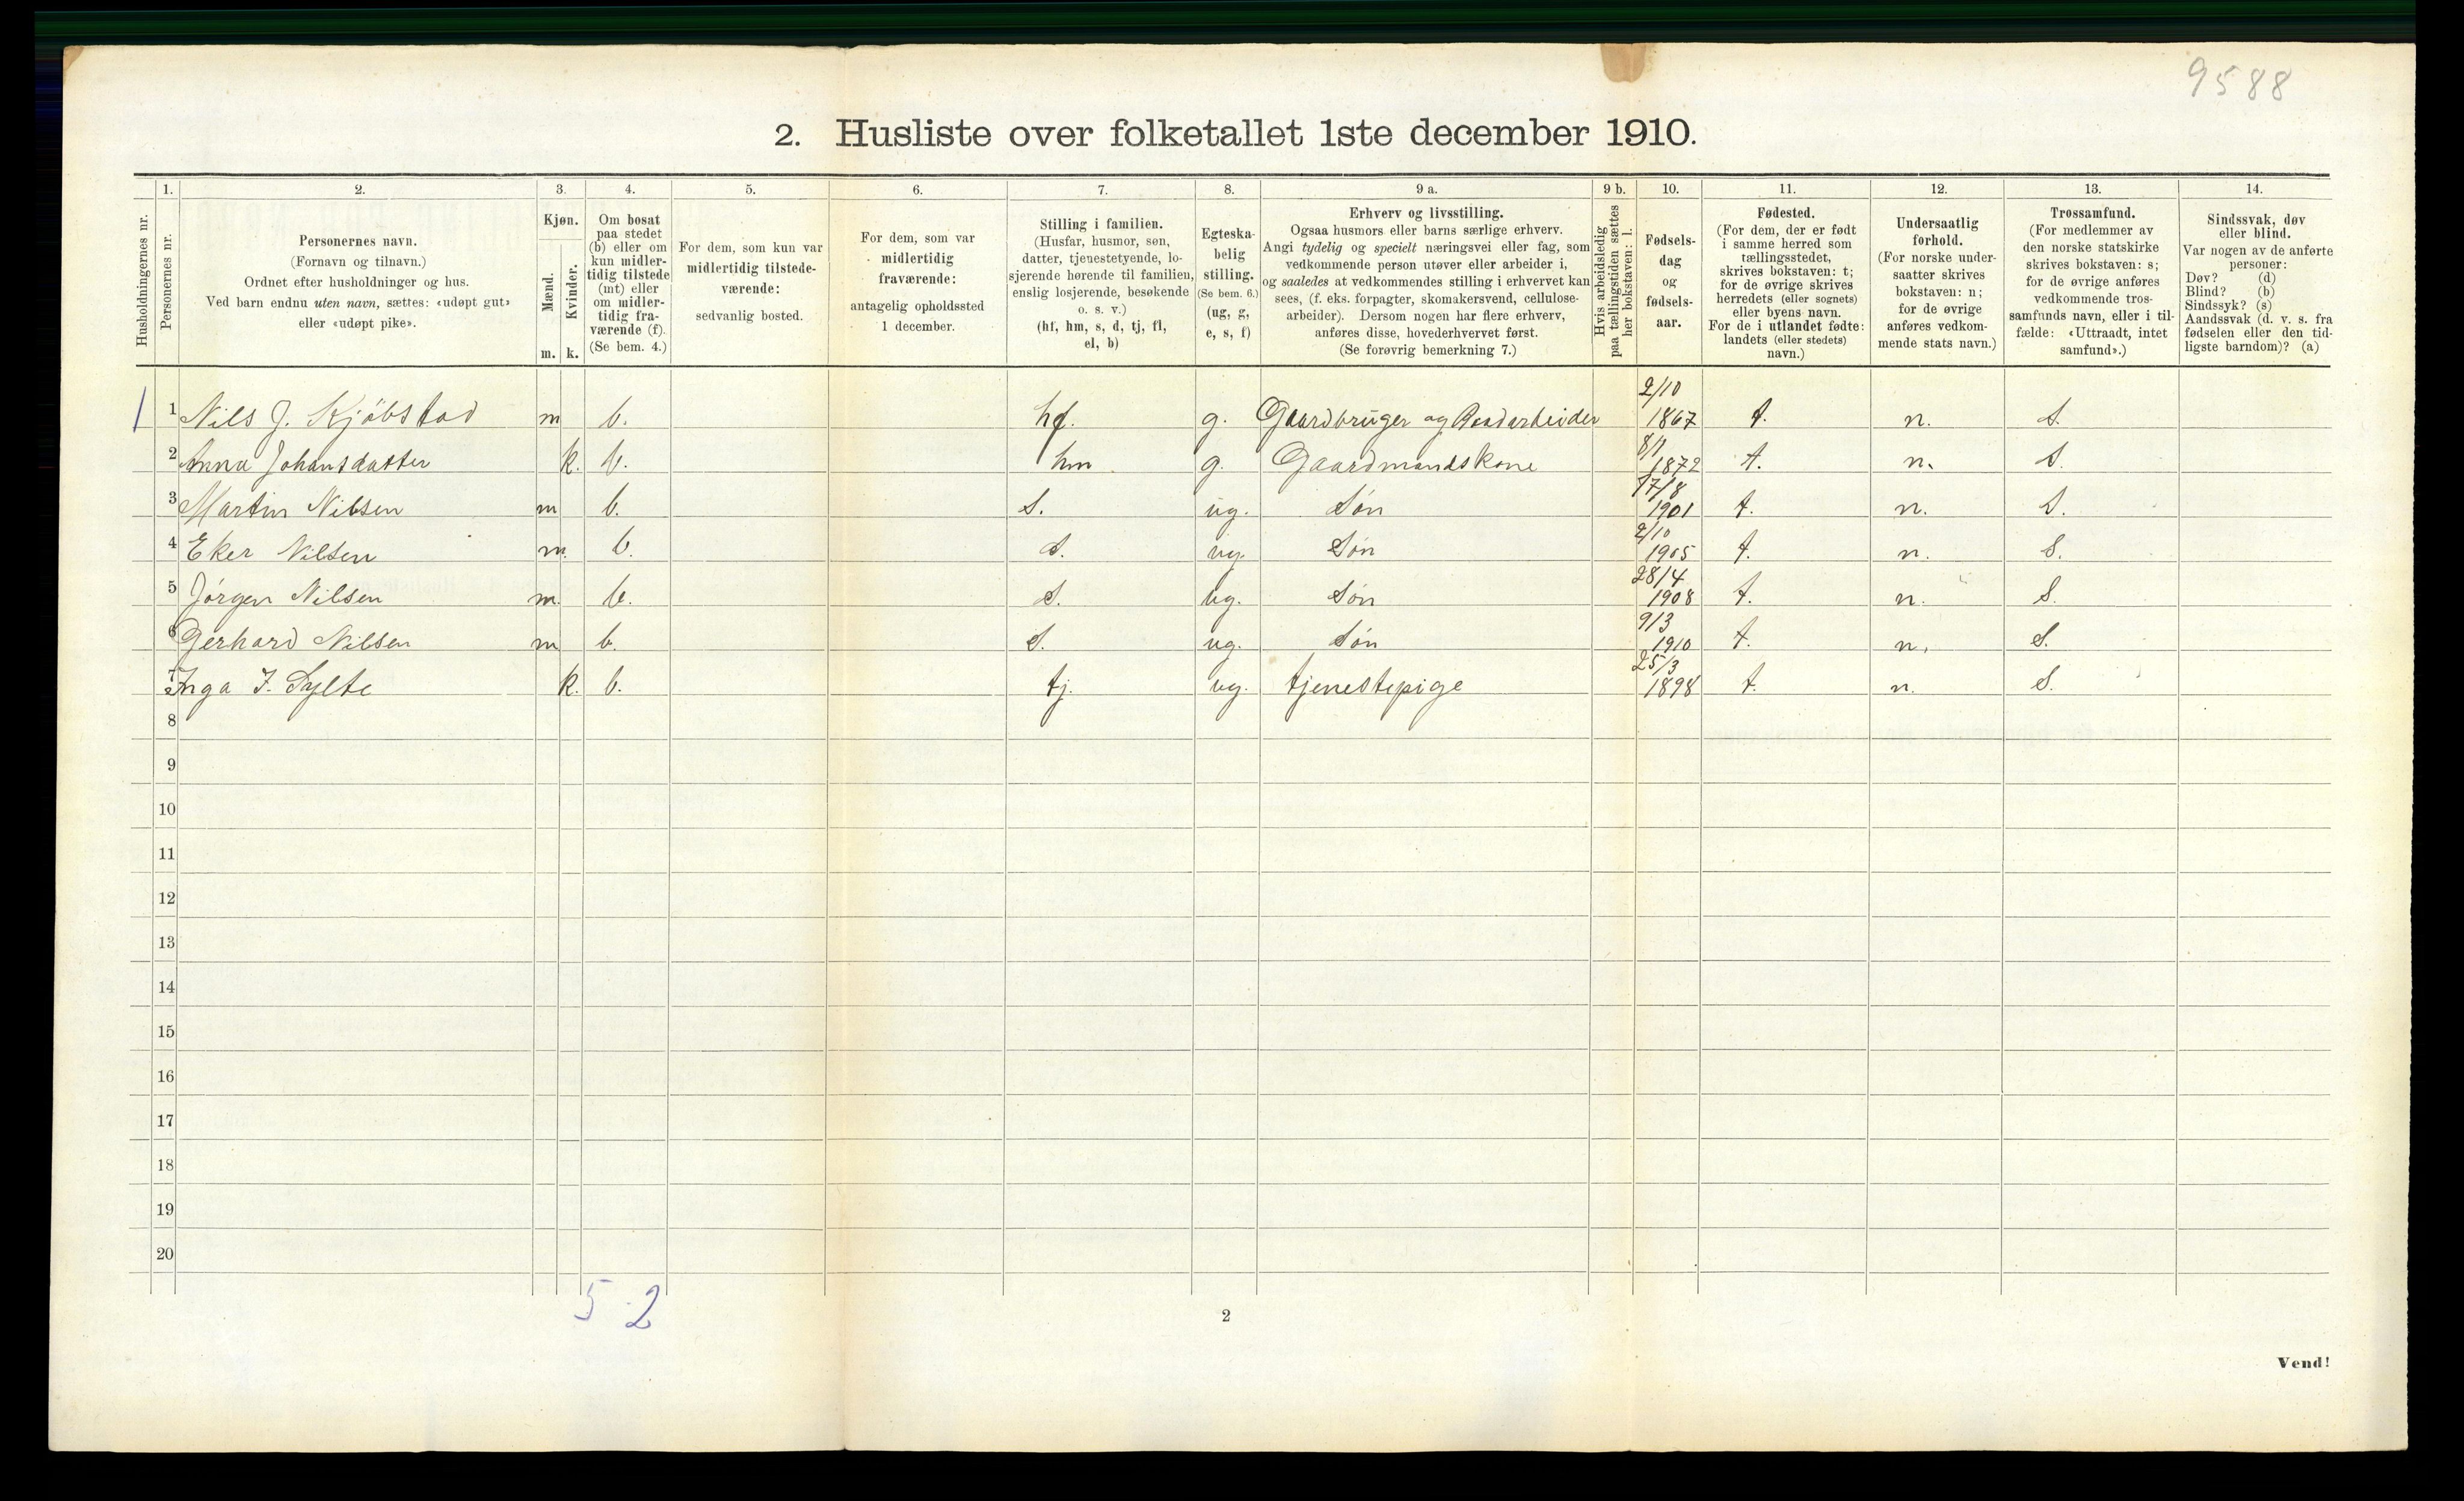 9588
2. Husliste over folketallet 1ste december 1910.
Husholdningernes nr.
1.
Personernes nr.
2.
Personernes navn.
(Fornavn og tilnavn.)
Ordnet efter husholdninger og hus.
Ved barn endnu uten navn, sættes: «udøpt gut»
eller «udøpt pike».
3.
Kjøn.
Mænd.
Kvinder.
m. k.
4.
Om bosat
paa stedet
(b) eller om
kun midler-
tidig tilstede
(mt) eller
om midler-
tidig fra-
værende (f).
(Se bem. 4.)
5.
For dem, som kun var
midlertidig tilstede-
værende:
sedvanlig bosted.
6.
For dem, som var
midlertidig
fraværende:
antagelig opholdssted
1 december.
7.
Stilling i familien.
(Husfar, husmor, søn,
datter, tjenestetyende, lo-
sjerende hørende til familien,
enslig losjerende, besøkende
o. s. v.)
(hf, hm, s, d, tj, fl,
el, b)
8.
Egteska-
belig
stilling.
(Se bem. 6.)
(ug, g,
e, s, f)
9 a.
Erhverv og livsstilling.
Ogsaa husmors eller barns særlige erhverv.
Angi tydelig og specielt næringsvei eller fag, som
vedkommende person utøver eller arbeider i,
og saaledes at vedkommendes stilling i erhvervet kan
sees, (f. eks. forpagter, skomakersvend, cellulose-
arbeider). Dersom nogen har flere erhverv,
anføres disse, hovederhvervet først.
(Se forøvrig bemerkning 7.)
9 b.
Hvis arbeidsledig
paa tællingstiden sættes
her bokstaven: l.
10.
Fødsels-
dag
og
fødsels-
aar.
11.
Fødested.
(For dem, der er født
i samme herred som
tællingsstedet,
skrives bokstaven: t;
for de øvrige skrives
herredets (eller sognets)
eller byens navn.
For de i utlandet fødte:
landets (eller stedets)
navn.)
12.
Undersaatlig
forhold.
(For norske under-
saatter skrives
bokstaven: n;
for de øvrige
anføres vedkom-
mende stats navn.)
13.
Trossamfund.
(For medlemmer av
den norske statskirke
skrives bokstaven: s;
for de øvrige anføres
vedkommende tros-
samfunds navn, eller i til-
fælde: «Uttraadt, intet
samfund».)
14.
Sindssvak, døv
eller blind.
Var nogen av de anførte
personer:
Døv? (d)
Blind? (b)
Sindssyk? (s)
Aandssvak (d. v. s. fra
fødselen eller den tid-
ligste barndom)? (a)
1 1 Nils J. Kjöbstad m b. hf. g. Gaardbruger og 2/10 1867 t. n. S.
2 Anna Johansdatter k. b. hm g. Gaardmandskone 8/1 1872 t. n. S.
3 Martin Nilsen m b. S. ug. Søn 17/8 1901 t. n. S.
4 Eker Nilsen m. b. S. ug. Søn 2/10 1905 t. n. S.
5 Jörgen Nilsen m. b. S. ug. Søn 28/4 1908 t. n. S.
6 Gerhard Nilsen m b. S. ug. Søn 9/3 1910 t. n. S.
7 Inga J. Sylte k. b. tj. ug. tjenestepige 25/3 1898 t. n. S.
8
9
10
11
12
13
14
15
16
17
18
19
20
5 2
2
Vend!